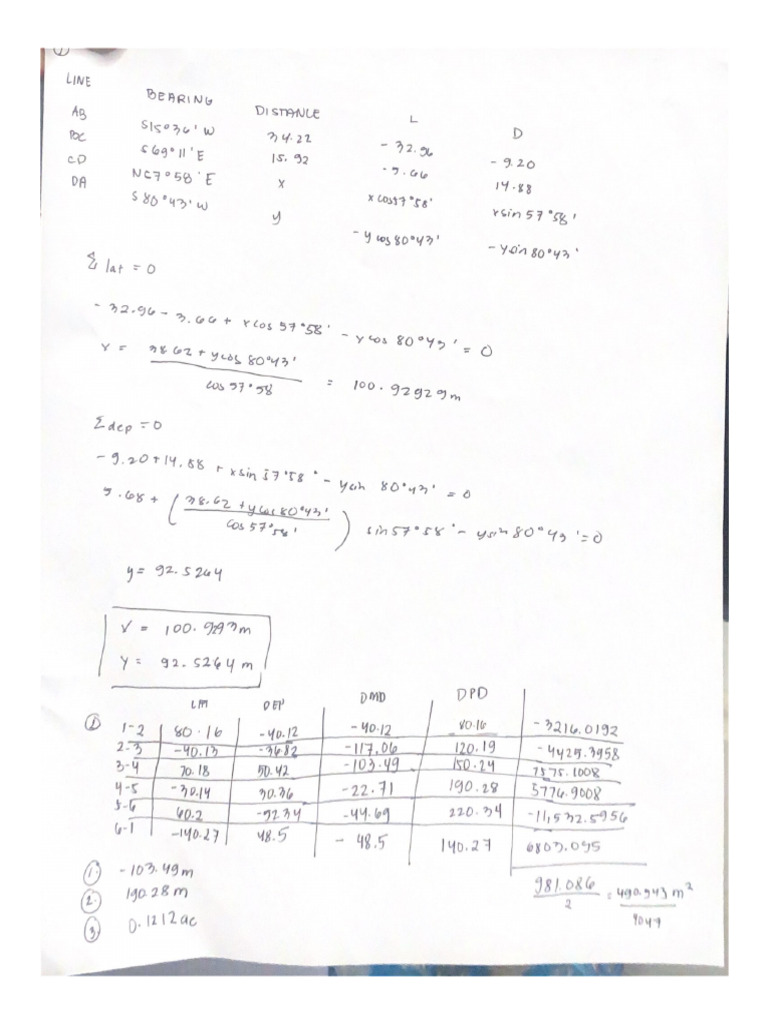 ①
LINE BEARING DISTANCE L D
AB S15°36'W 34.22 - 32.96 - 9.20
BC S69°11'E 15.92 - 5.66 14.88
CD N57°58'E x x cos57°58' x sin 57°58'
DA S80°43'W y - y cos 80°43' - y sin 80°43'
Σ lat = 0
- 32.96 - 5.66 + x cos 57°58' - y cos 80°43' = 0
x = 38.62 + y cos 80°43' / cos 57°58 = 100.92929m
Σ dep = 0
- 9.20 + 14.88 + x sin 57°58' - y sin 80°43' = 0
5.68 + ( 38.62 + y cos 80°43' / cos 57°58' ) sin 57°58' - y sin 80°43' = 0
y = 92.5264
x = 100.9293m
y = 92.5264 m
LAT DEP DMD DPD
② 1-2 80.16 -40.12 -40.12 80.16 -3216.0192
2-3 -40.13 -36.82 -117.06 120.19 -4425.3958
3-4 70.18 50.42 -103.49 150.24 7575.1008
4-5 -30.14 30.36 -22.71 190.28 5776.9008
5-6 60.2 -52.34 -44.69 220.34 -11,532.5956
6-1 -140.27 48.5 - 48.5 140.27 6803.095
981.086 / 2 = 490.543 m² / 4047
① -103.49m
② 190.28m
③ 0.1212ac